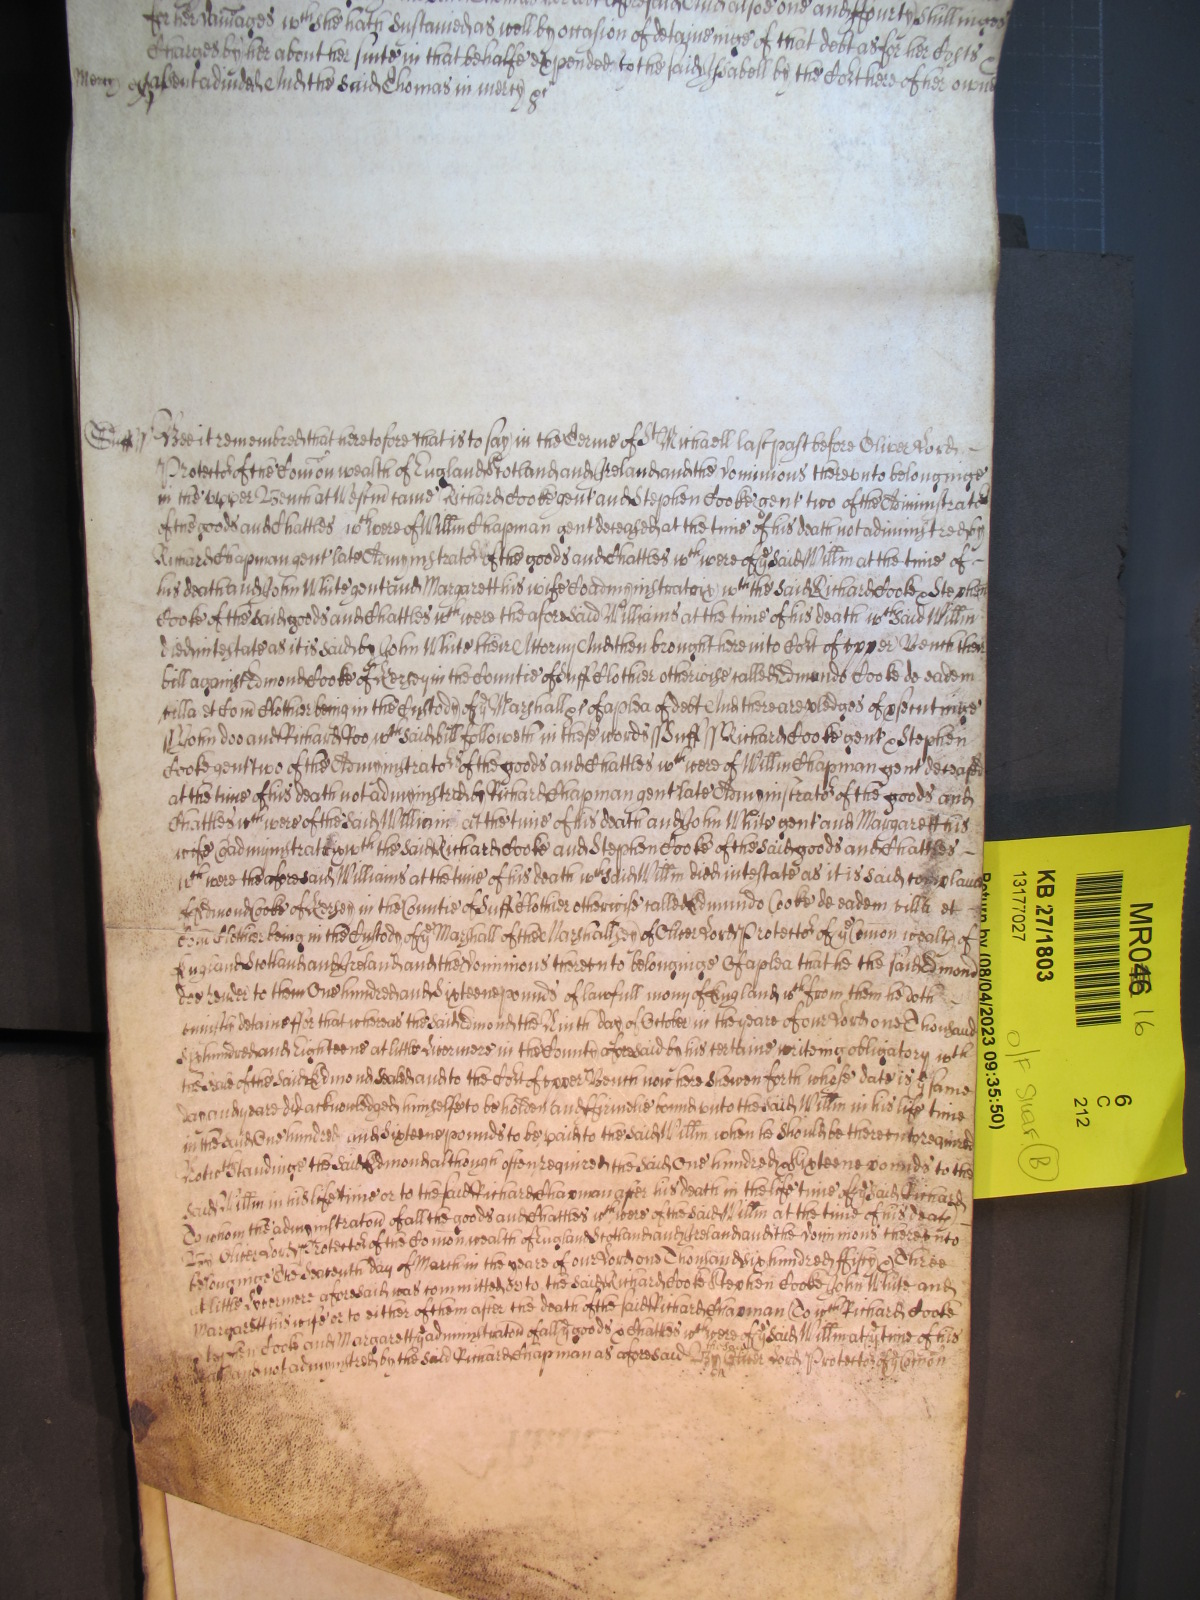 for her damages wch she hath susteined as well by occasion of deteyneinge of that debt as for her Costs &
Charges by her about her suite in that behalfe expended to the said Isabell by the Cort here of her owne
Mercy assent adiudged And the said Thomas in mercy &c
Suff ss Bee it remembred that heretofore that is to say in the Terme of St Michaell last past before Oliver Lord
Protector of the Comonwealth of England Scotland and Ireland and the dominions thereunto belonginge
in the upper Bench at Westm came Richard Cooke gent and Stephen Cooke gent two of the Administrators
of the goods and Chattles wch were of Willm Chapman gent deceased at the time of his death not administred by
Richard Chapman gent late Admynistrator of the goods and Chattles wch were of ye said Willm at the time of
his death and John White gent and Margarett his wife Coadmynistratrix wth the said Richard Cooke & Stephen
Cooke of the said goods and Chattles wch were the aforesaid Williams at the time of his death wch said Willm
died intestate as it is said by John White their Attorny And then brought here into Cort of upper Bench their
bill against Edmond Cooke of Kersey in the Countie of Suff Clothier otherwise called Edmundo Cooke de eadem
villa et Com Clothier being in the Custody of ye Marshall &c of a plea of debt And there are pledges of prsecutinge
John doo and Richard Roo wch said bill followeth in these words ss Suff ss Richard Cooke gent & Stephen
Cooke gent two of the Admynistrators of the goods and Chattles wch were of Willm Chapman gent deceased
at the time of his death not admynistred by Richard Chapman gent late Admynistrator of the goods and
Chattles wch were of the said William at the time of his death and John White gent and Margarett his
wife Coadmynistratrix wth the said Richard Cooke and Stephen Cooke of the said goods and Chattles
wch were the aforesaid Williams at the time of his death wch said Willm died intestate as it is said complaine
of Edmond Cooke of Kersey in the Countie of Suff Clothier otherwise called Edmundo Cooke de eadem villa et
Com Clothier being in the Custody of ye Marshall of the Marshallsey of Oliver Lord Protector of ye Comon wealth of
England Scotland and Ireland and the Dominions thereunto belonginge Of a plea that he the said Edmond
doe render to them One hundred and Sixteene pounds of lawfull mony of England wch from them he doth
uniustly detaine ffor that whereas the said Edmond the Ninth day of October in the yeare of our Lord one Thousand
Six hundred and Eighteene at little Livermere in the County aforesaid by his certaine writeing obligatory wth
the seale of the said Edmond sealed and to the Cort of upper Bench now here shewen forth whose date is ye same
day and yeare did acknowledged himselfe to be holden and ffirmelie bound unto the said Willm in his life time
in the said One hundred and Sixteene pounds to be paid to the said Willm when he should be thereunto required
Notwthstandinge the said Edmond although often required the said One hundred & Sixteene pounds to the
said Willm in his life time or to the said Richard Chapman after his death in the life time of ye said Richard
To whom the administracon of all the goods and Chattles wch were of the said Willm at the time of his death
by Oliver Lord Protector of the Comonwealth of England Scotland and Ireland and the Dominions thereunto
belonginge the Seaventh day of March in the yeare of our Lord one Thousand six hundred ffifty & Three
at little Livermere aforesaid was committed or to the said Richard Cooke Stephen Cooke John White and
Margarett his wife or to either of them after the death of the said Richard Chapman To wch Richard Cooke
Stephen Cooke and Margarett ye administracon of all ye goods & Chattles wch were of ye said Willm at ye time of his
death and not admynistred by the said Richard Chapman as aforesaid by Oliver Lord Protector of ye Comon
MR046 16
6
C
212
KB 27/1803
13177027
O/F Shar. B
Return by (08/04/2023 09:35:50)